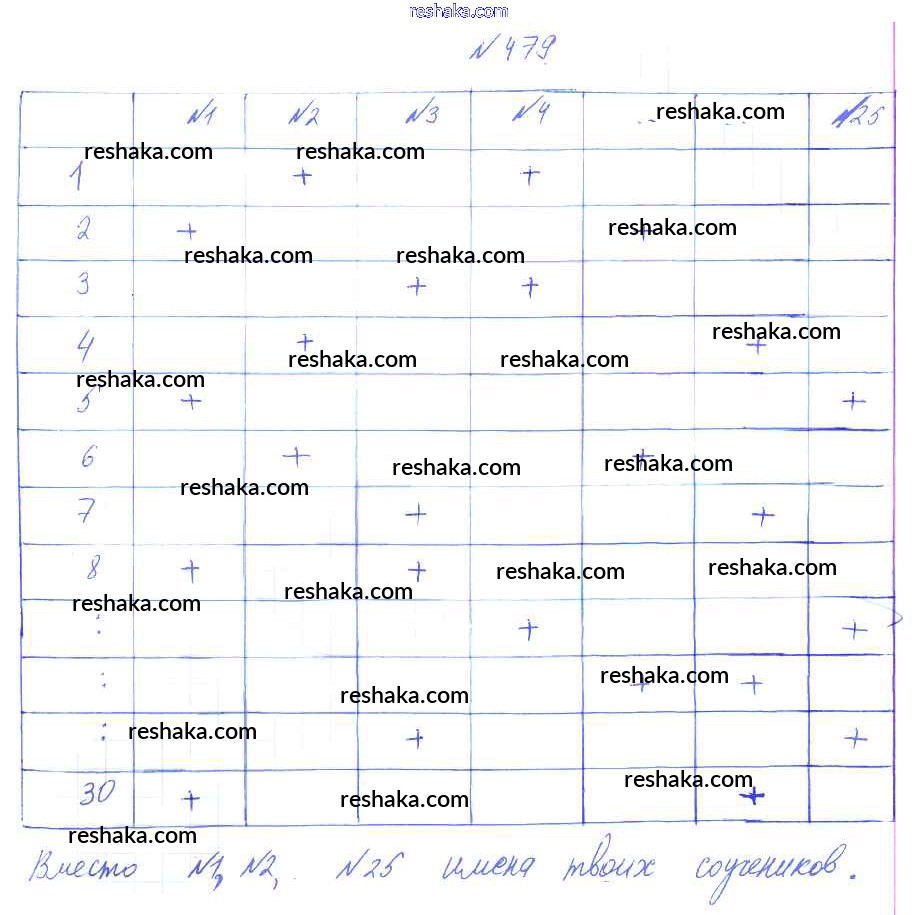 reshaka.com
N 479
N1 N2 N3 N4 .. reshaka.com .. N25
reshaka.com reshaka.com
1 + +
2 + + reshaka.com
reshaka.com reshaka.com
3 + +
4 + + reshaka.com
reshaka.com reshaka.com
reshaka.com
5 + +
6 + + reshaka.com
reshaka.com
reshaka.com
7 + +
8 + + reshaka.com reshaka.com
reshaka.com
reshaka.com
: + +
: + + reshaka.com
reshaka.com
: reshaka.com + +
reshaka.com
30 + + reshaka.com
reshaka.com
Вместо N1, N2, N25 имена твоих соучеников.